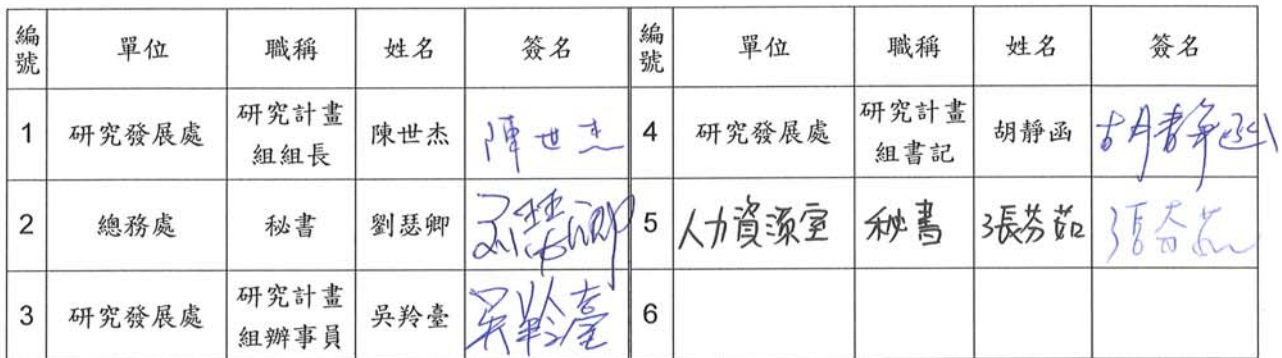 編號 單位 職稱 姓名 簽名 編號 單位 職稱 姓名 簽名
1 研究發展處 研究計畫組組長 陳世杰 陳世杰 4 研究發展處 研究計畫組書記 胡靜函 胡靜函
2 總務處 秘書 劉瑟卿 劉瑟卿 5 人力資源室 秘書 張芬茹 張芬茹
3 研究發展處 研究計畫組辦事員 吳羚臺 吳羚臺 6